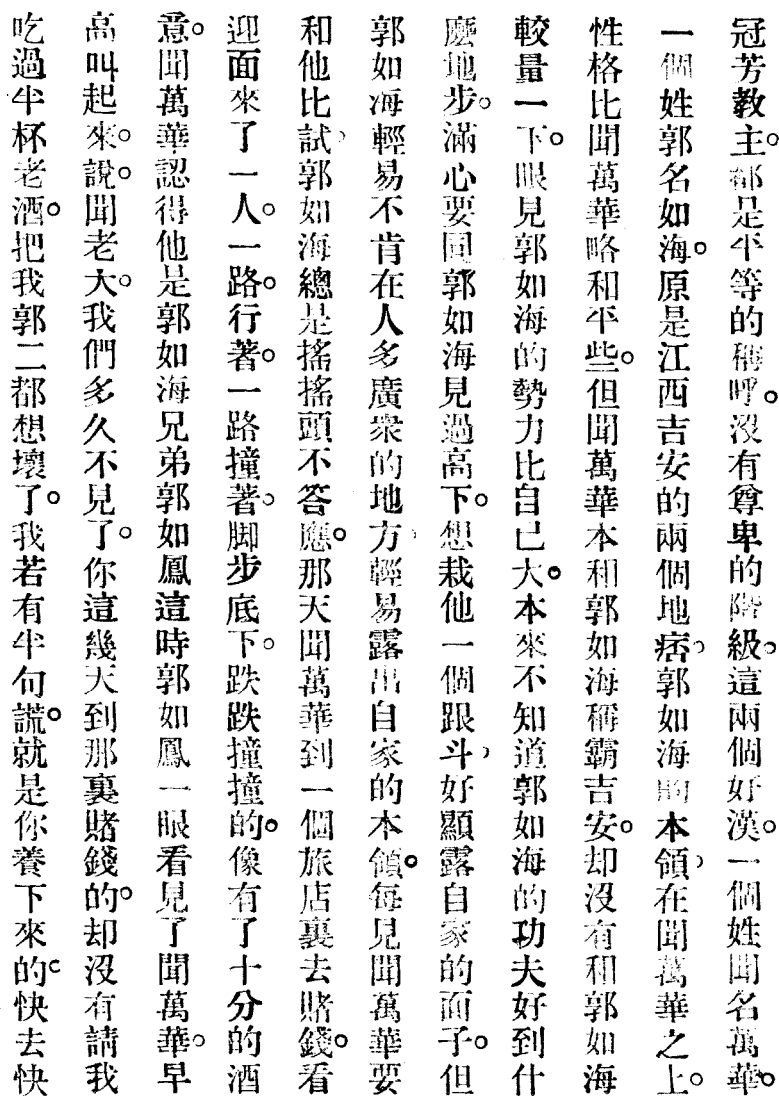 冠芳教主。都是平等的稱呼。沒有尊卑的階級。這兩個好漢。一個姓聞名萬華。
一個姓郭名如海。原是江西吉安的兩個地痞、郭如海的本領、在聞萬華之上。
性格比聞萬華略和平些。但聞萬華本和郭如海稱霸吉安。却沒有和郭如海
較量一下。眼見郭如海的勢力比自己大。本來不知道郭如海的功夫好到什
麼地步。滿心要同郭如海見過高下。想栽他一個跟斗、好顯露自家的面子。但
郭如海輕易不肯在人多廣衆的地方、輕易露出自家的本領。每見聞萬華要
和他比試、郭如海總是搖搖頭不答應。那天聞萬華到一個旅店裏去賭錢。看
迎面來了一人。一路行著。一路撞著。脚步底下。跌跌撞撞的。像有了十分的酒
意。聞萬華認得他是郭如海兄弟郭如鳳這時郭如鳳一眼看見了聞萬華。早
高叫起來。說。聞老大。我們多久不見了。你這幾天到那裏賭錢的。却沒有請我
吃過半杯老酒。把我郭二都想壞了。我若有半句謊。就是你養下來的。快去快